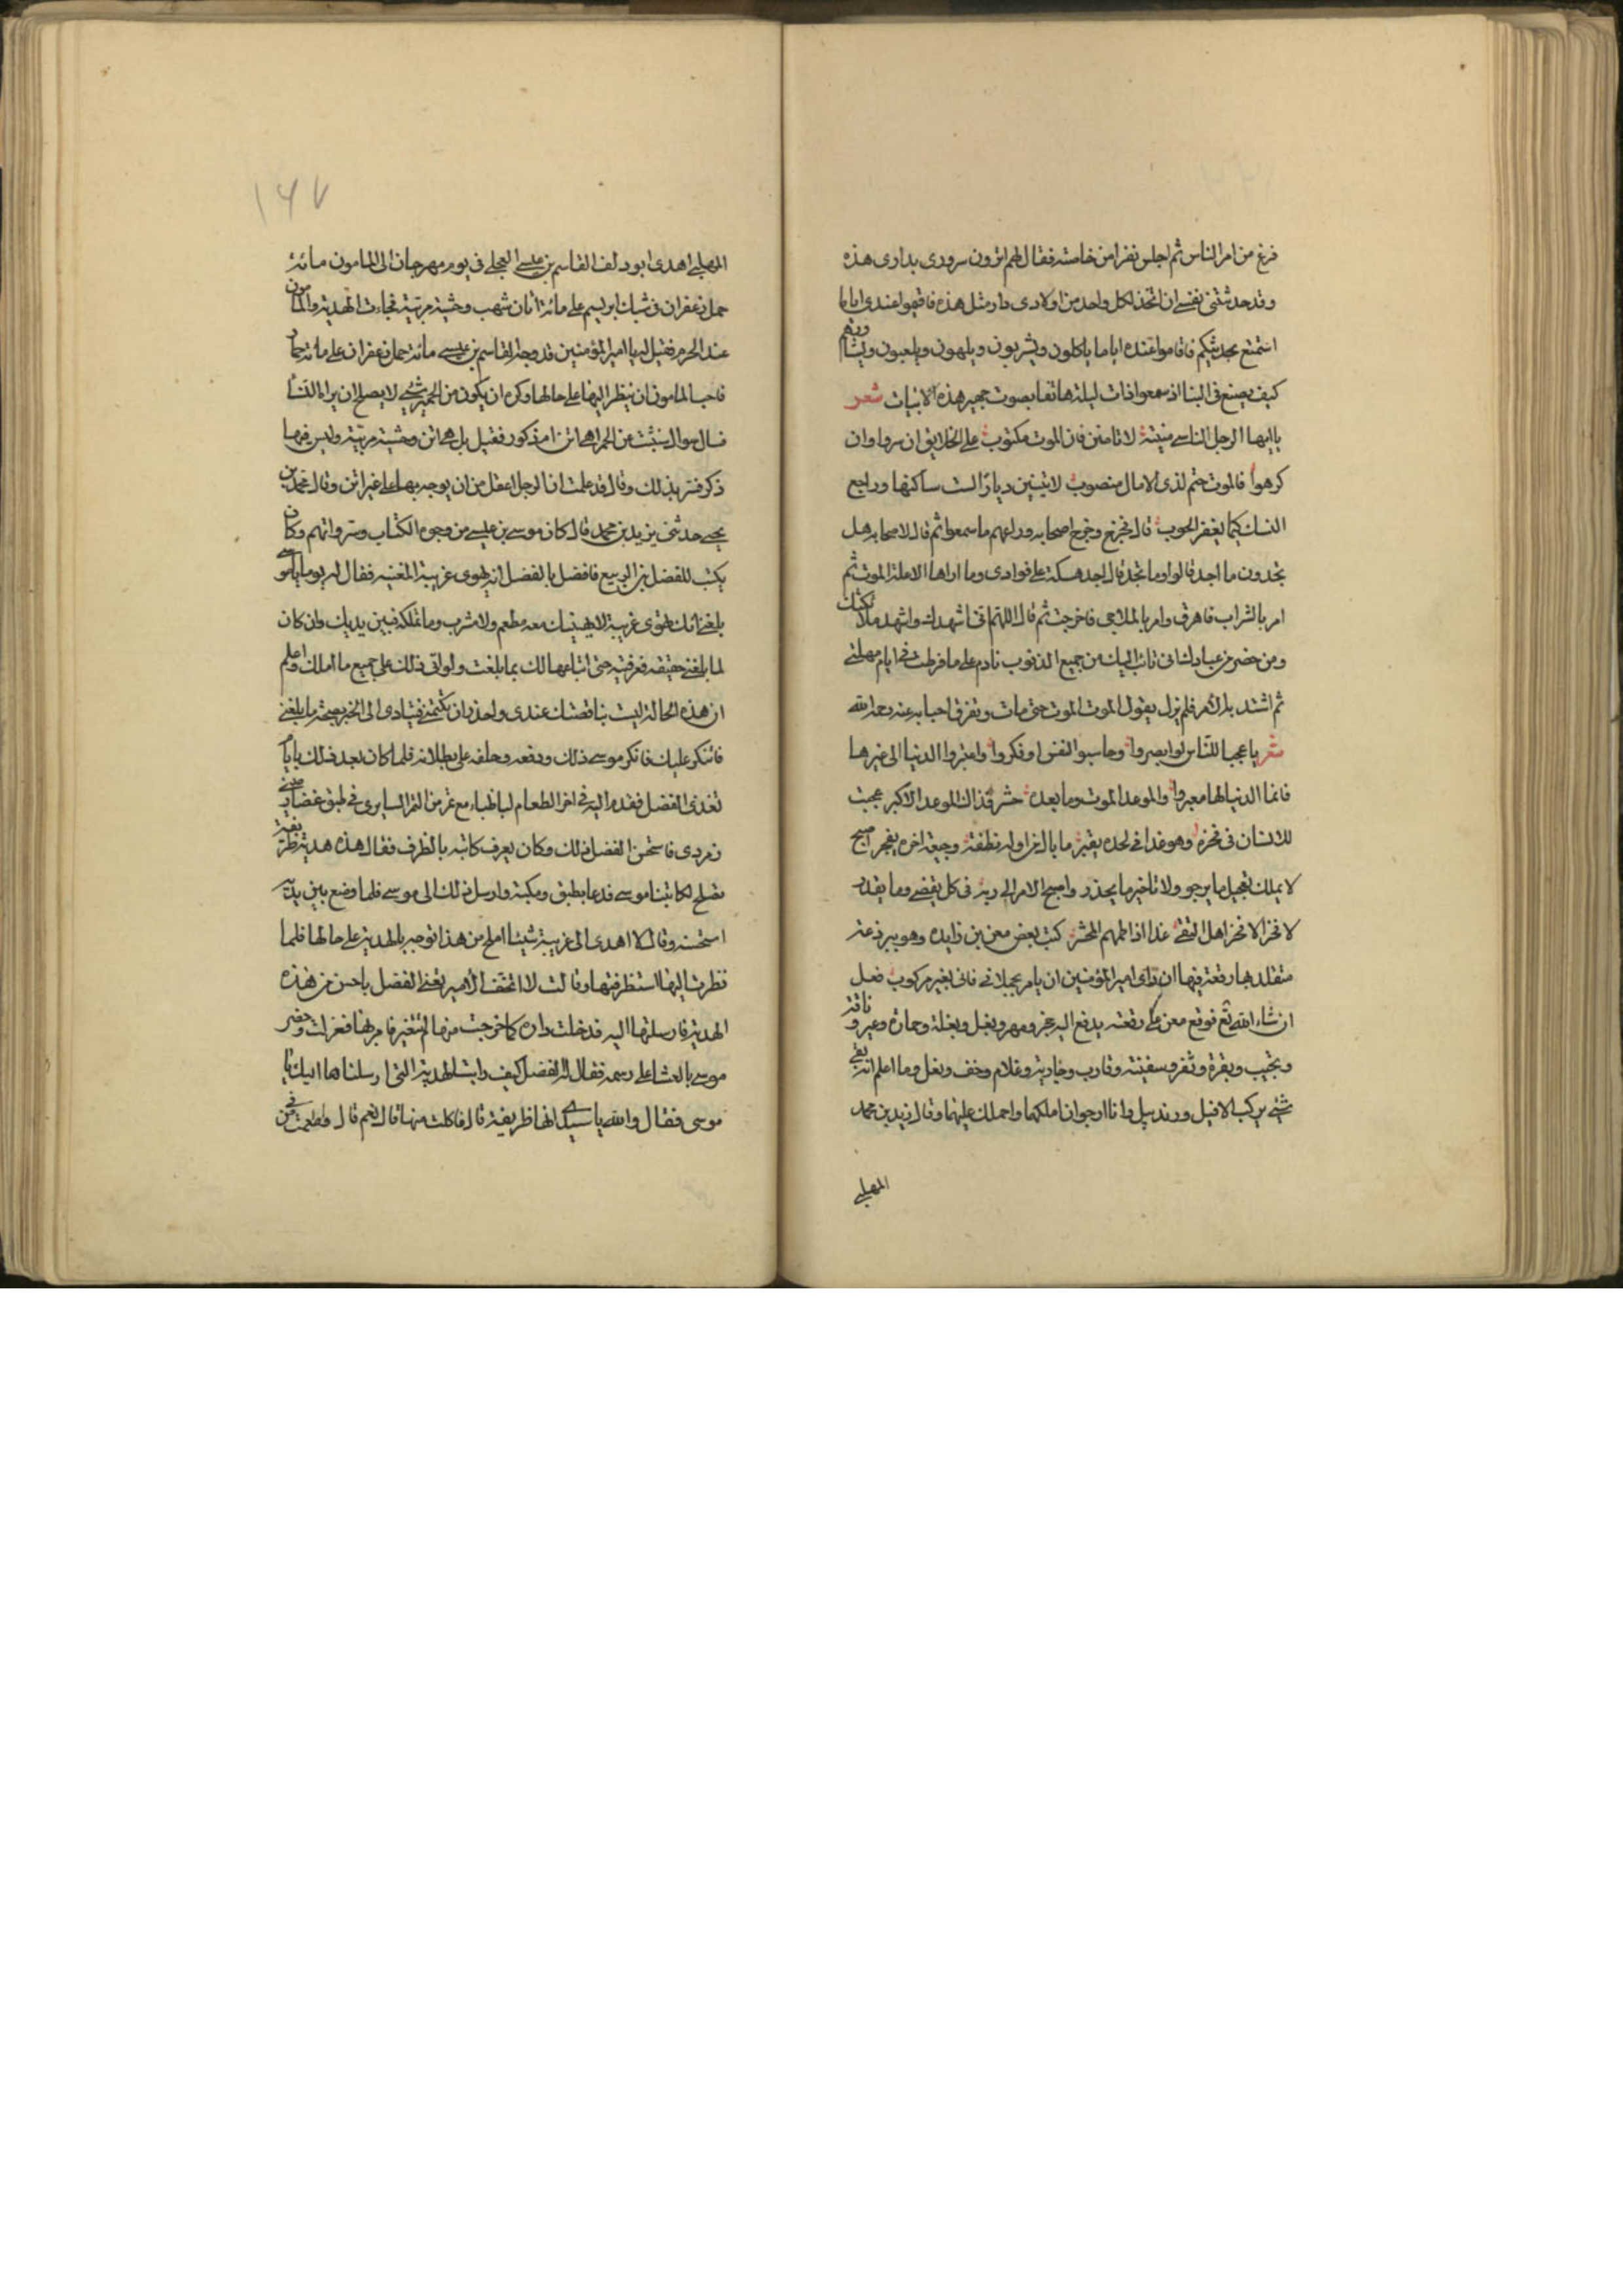 فرغ من امر الناس ثم اجلس نفرا من خاصته فقال لهم اترون سرورى بدارى هذه
وقد حدثتنى نفسى ان اتخذ لكل واحد من اولادى دار مثل هذه فاقيموا عندى اياما
استمتع بحديثكم فاقاموا عنده اياما ياكلون ويشربون ويلهون ويلعبون ويشاورهم
كيف يصنع فى البنا اذ سمعوا ذات ليلة هاتفا بصوت جهير هذه الابيات شعر
ياايها الرجل الناسى منيته لا تامنن فان الموت مكتوب على الخلايق ان سروا وان
كرهوا فالموت حتم لذى الامال منصوب لا تبنين ديارا لست ساكنها وراجع
النسك كيما يغفر الحوب قال فجزع وجزع اصحابه وراعهم ما سمعوا ثم قال لاصحابه هل
تجدون ما اجد قالوا وما تجد قال اجد مسكة على فوادى وما اراها الا علة الموت ثم
امر بالشراب فاهرق وامر بالملاهى فاخرجت ثم قال اللهم انى اشهدك واشهد ملائكتك
ومن حضر من عبادك انى تائب اليك من جميع الذنوب نادم على ما فرطت فى ايام مهلتى
ثم اشتد به الامر فلم يزل يقول الموت الموت حتى مات وتفرق احبابه عنه رحمه الله
شعر ياعجبا للناس لو ابصروا وحاسبوا انفسهم او فكروا واعتبروا الدنيا الى غيرها
فانما الدنيا لها معبر والموعد الموت وما بعده حشر فذاك الموعد الاكبر عجبت
للانسان فى فخره وهو غدا فى لحده يقبر ما بال من اوله نطفة وجيفة اخره يفخر اصبح
لا يملك تعجيل ما يرجو ولا تاخير ما يحذر واصبح الامر الى ربه فى كل ما يقضى وما يقدر
لا فخر الا فخر اهل التقى غدا اذا ضمهم المحشر كتب بعض معن بن زايده وهو ببرذعة
متقلدها رقعة فيها ان راى امير المؤمنين ان يامر بحملانى فانى بغير مركوب فعل
ان شاء الله تع فوقع معن على رقعته يدفع اليه فرس ومهر وبغل وبغلة وحمارة وعير وناقة
ونجيب وبقرة وثور وسفينة وقارب وجارية وغلام وخف ونعل وما اعلم انه بقى
شىء يركب الا فيل وزندبيل وانا ارجو ان املكهما واحملك عليهما وقال يزيد بن محمد
المهلبى
١٤٧
المهلبى اهدى ابو دلف القاسم بن عيسى العجلى فى يوم مهرجان الى المامون مائة
حمل زعفران فى شباك ابريسم على مائة اتان شهب وحشية مربية فجاءت الهدية والمامون
عند الحرم فقيل له يا امير المؤمنين قد وجه القاسم بن عيسى مائة حمل زعفران على مائة حمار
فاحب المامون ان ينظر اليها على حالها وكره ان يكون من الحمير شىء لا يصلح ان يراه النساء
فسال سوال متثبت عن الحمر اهى اتن ام ذكور فقيل بل هى اتن وحشية مربية وليس فيها
ذكر فسر بذلك وقال قد علمت ان الرجل اعقل من ان يوجه بها على غير اتن وقال محمد بن
يحيى حدثنى يزيد بن محمد قال كان موسى بن عيسى من وجوه الكتاب وسرواتهم وكان
يكتب للفضل بن الربيع فافضل بالفضل انه يهوى غريبة المغنية فقال له يوما يا موسى
بلغنى انك تهوى غريبة لا يهنيك معه مطعم ولا مشرب وما تملكه فبين يديك وان كان
لما بلغنى حقيقة فعرفنيه حتى ابتاعها لك بما بلغت ولو اتى ذلك على جميع ما املك واعلم
ان هذه الحالة ليست بناقضتك عندى واحذر ان تكتمنى فيتادى الى الخبر بصحة ما بلغنى
فاتنكر عليك فانكر موسى ذلك ودفعه وحلفه على بطلانه فلما كان بعد ذلك بايام
تغدى الفضل فقدم اليه فى اخر الطعام لبا ظباء مع تمر من التمر السابرى فى طبق غضار صينى
زمردى فاستحسن الفضل ذلك وكان يعرف كاتبه بالظرف فقال هذه هدية ظريفة
تصلح لكاتبنا موسى فدعا بطبق ومكبة وارسل ذلك الى موسى فلما وضع بين يديه
استحسنه وقال لا اهدى الى غريبة شيئا املح من هذا فوجه بالهدية على حالها فلما
نظرت اليها استظرفتها وقالت لا اتحف الامير يعنى الفضل باحسن من هذه
الهدية فارسلتها اليه فدخلت داره كما خرجت منها لم تتغير فامر بها فعزلت وحضر
موسى بالعشا على رسمه فقال له الفضل كيف رايت الهدية التى ارسلناها اليك يا
موسى فقال والله يا سيدى انها ظريفة قال فاكلت منها قال نعم قال واطعمت من